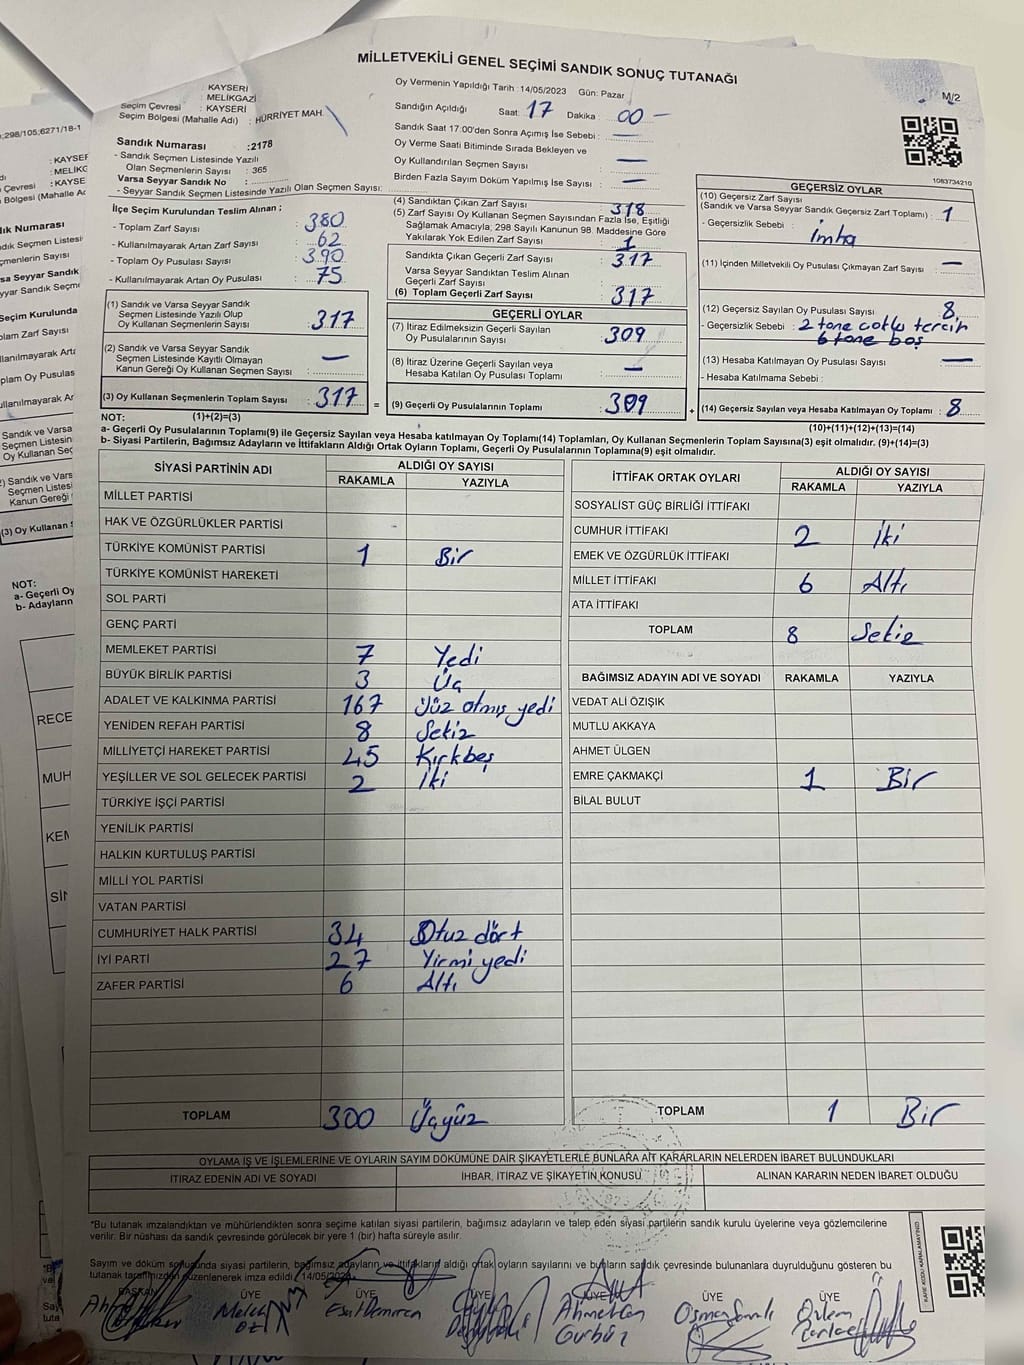 MİLLETVEKİLİ GENEL SEÇİMİ SANDIK SONUÇ TUTANAĞI
M/2
KAYSERİ
MELİKGAZİ
Seçim Çevresi : KAYSERİ
Seçim Bölgesi (Mahalle Adı) : HÜRRİYET MAH.
Sandık Numarası :2178
- Sandık Seçmen Listesinde Yazılı
Olan Seçmenlerin Sayısı : 365
Varsa Seyyar Sandık No :
- Seyyar Sandık Seçmen Listesinde Yazılı Olan Seçmen Sayısı:
Oy Vermenin Yapıldığı Tarih :14/05/2023 Gün: Pazar
Sandığın Açıldığı Saat: 17 Dakika : 00 —
Sandık Saat 17:00'den Sonra Açımış İse Sebebi : —
Oy Verme Saati Bitiminde Sırada Bekleyen ve
Oy Kullandırılan Seçmen Sayısı : —
Birden Fazla Sayım Döküm Yapılmış İse Sayısı : —
İlçe Seçim Kurulundan Teslim Alınan ;
- Toplam Zarf Sayısı : 380
- Kullanılmayarak Artan Zarf Sayısı : 62
- Toplam Oy Pusulası Sayısı : 390
- Kullanılmayarak Artan Oy Pusulası : 75
(1) Sandık ve Varsa Seyyar Sandık
Seçmen Listesinde Yazılı Olup
Oy Kullanan Seçmenlerin Sayısı : 317
(2) Sandık ve Varsa Seyyar Sandık
Seçmen Listesinde Kayıtlı Olmayan
Kanun Gereği Oy Kullanan Seçmen Sayısı : —
(3) Oy Kullanan Seçmenlerin Toplam Sayısı : 317 =
(4) Sandıktan Çıkan Zarf Sayısı : 318
(5) Zarf Sayısı Oy Kullanan Seçmen Sayısından Fazla İse, Eşitliği
Sağlamak Amacıyla; 298 Sayılı Kanunun 98. Maddesine Göre
Yakılarak Yok Edilen Zarf Sayısı : 1
Sandıkta Çıkan Geçerli Zarf Sayısı : 317
Varsa Seyyar Sandıktan Teslim Alınan
Geçerli Zarf Sayısı :
(6) Toplam Geçerli Zarf Sayısı : 317
GEÇERLİ OYLAR
(7) İtiraz Edilmeksizin Geçerli Sayılan
Oy Pusulalarının Sayısı : 309
(8) İtiraz Üzerine Geçerli Sayılan veya
Hesaba Katılan Oy Pusulası Toplamı : —
(9) Geçerli Oy Pusulalarının Toplamı : 309 +
1083734210
GEÇERSİZ OYLAR
(10) Geçersiz Zarf Sayısı
(Sandık ve Varsa Seyyar Sandık Geçersiz Zarf Toplamı) : 1
- Geçersizlik Sebebi : imha
(11) İçinden Milletvekili Oy Pusulası Çıkmayan Zarf Sayısı : —
(12) Geçersiz Sayılan Oy Pusulası Sayısı : 8
- Geçersizlik Sebebi : 2 tane
6 tane boş
(13) Hesaba Katılmayan Oy Pusulası Sayısı : —
- Hesaba Katılmama Sebebi :
(14) Geçersiz Sayılan veya Hesaba Katılmayan Oy Toplamı : 8
NOT: (1)+(2)=(3) (10)+(11)+(12)+(13)=(14)
a- Geçerli Oy Pusulalarının Toplamı(9) ile Geçersiz Sayılan veya Hesaba katılmayan Oy Toplamı(14) Toplamları, Oy Kullanan Seçmenlerin Toplam Sayısına(3) eşit olmalıdır. (9)+(14)=(3)
b- Siyasi Partilerin, Bağımsız Adayların ve İttifakların Aldığı Ortak Oyların Toplamı, Geçerli Oy Pusulalarının Toplamına(9) eşit olmalıdır.
SİYASİ PARTİNİN ADI ALDIĞI OY SAYISI
RAKAMLA YAZIYLA
MİLLET PARTİSİ
HAK VE ÖZGÜRLÜKLER PARTİSİ
TÜRKİYE KOMÜNİST PARTİSİ 1 Bir
TÜRKİYE KOMÜNİST HAREKETİ
SOL PARTİ
GENÇ PARTİ
MEMLEKET PARTİSİ 7 Yedi
BÜYÜK BİRLİK PARTİSİ 3 Üç
ADALET VE KALKINMA PARTİSİ 167 Yüz otmış yedi
YENİDEN REFAH PARTİSİ 8 Sekiz
MİLLİYETÇİ HAREKET PARTİSİ 45 Kırkbeş
YEŞİLLER VE SOL GELECEK PARTİSİ 2 İki
TÜRKİYE İŞÇİ PARTİSİ
YENİLİK PARTİSİ
HALKIN KURTULUŞ PARTİSİ
MİLLİ YOL PARTİSİ
VATAN PARTİSİ
CUMHURİYET HALK PARTİSİ 34 Otuz dört
İYİ PARTİ 27 Yirmi yedi
ZAFER PARTİSİ 6 Altı
TOPLAM 300 Üçyüz
İTTİFAK ORTAK OYLARI ALDIĞI OY SAYISI
RAKAMLA YAZIYLA
SOSYALİST GÜÇ BİRLİĞİ İTTİFAKI
CUMHUR İTTİFAKI 2 İki
EMEK VE ÖZGÜRLÜK İTTİFAKI
MİLLET İTTİFAKI 6 Altı
ATA İTTİFAKI
TOPLAM 8 Sekiz
BAĞIMSIZ ADAYIN ADI VE SOYADI RAKAMLA YAZIYLA
VEDAT ALİ ÖZIŞIK
MUTLU AKKAYA
AHMET ÜLGEN
EMRE ÇAKMAKÇİ 1 Bir
BİLAL BULUT
TOPLAM 1 Bir
OYLAMA İŞ VE İŞLEMLERİNE VE OYLARIN SAYIM DÖKÜMÜNE DAİR ŞİKAYETLERLE BUNLARA AİT KARARLARIN NELERDEN İBARET BULUNDUKLARI
İTİRAZ EDENİN ADI VE SOYADI İHBAR, İTİRAZ VE ŞİKAYETİN KONUSU ALINAN KARARIN NEDEN İBARET OLDUĞU
*Bu tutanak imzalandıktan ve mühürlendikten sonra seçime katılan siyasi partilerin, bağımsız adayların ve talep eden siyasi partilerin sandık kurulu üyelerine veya gözlemcilerine
verilir. Bir nüshası da sandık çevresinde görülecek bir yere 1 (bir) hafta süreyle asılır.
Sayım ve döküm sonucunda siyasi partilerin, bağımsız adayların ve ittifakların aldığı ortak oyların sayılarını ve bunların sandık çevresinde bulunanlara duyrulduğunu gösteren bu
tutanak tarafımızdan düzenlenerek imza edildi. 14/05/2023
BAŞKAN ÜYE ÜYE ÜYE ÜYE
Melek Öz Esat Demirca Ahmetcan Gürbüz Osman Özlem
KARE KODU KARALAMAYINIZ!
:298/105;6271/18-1
: KAYSE
: MELİKG
: KAYSE
NOT:
a- Geçerli Oy
b- Adayların
RECE
MUH
KEM
SİN